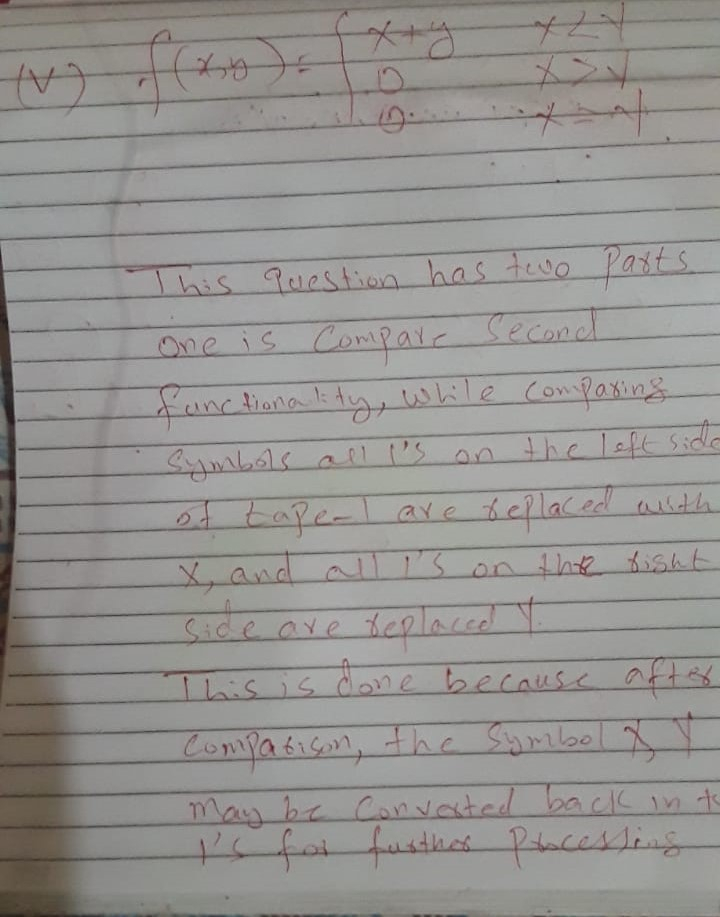 (V) f(x,y) = { x+y x<y
0 x>y
0 x=y
This Question has two Parts
one is Compare Second
functionality, while comparing
Symbols all 1's on the left side
of tape-1 are replaced with
X, and all 1's on the right
side are replaced Y.
This is done because after
Comparison, the Symbol X, Y
may be Converted back in to
1's for further Processing